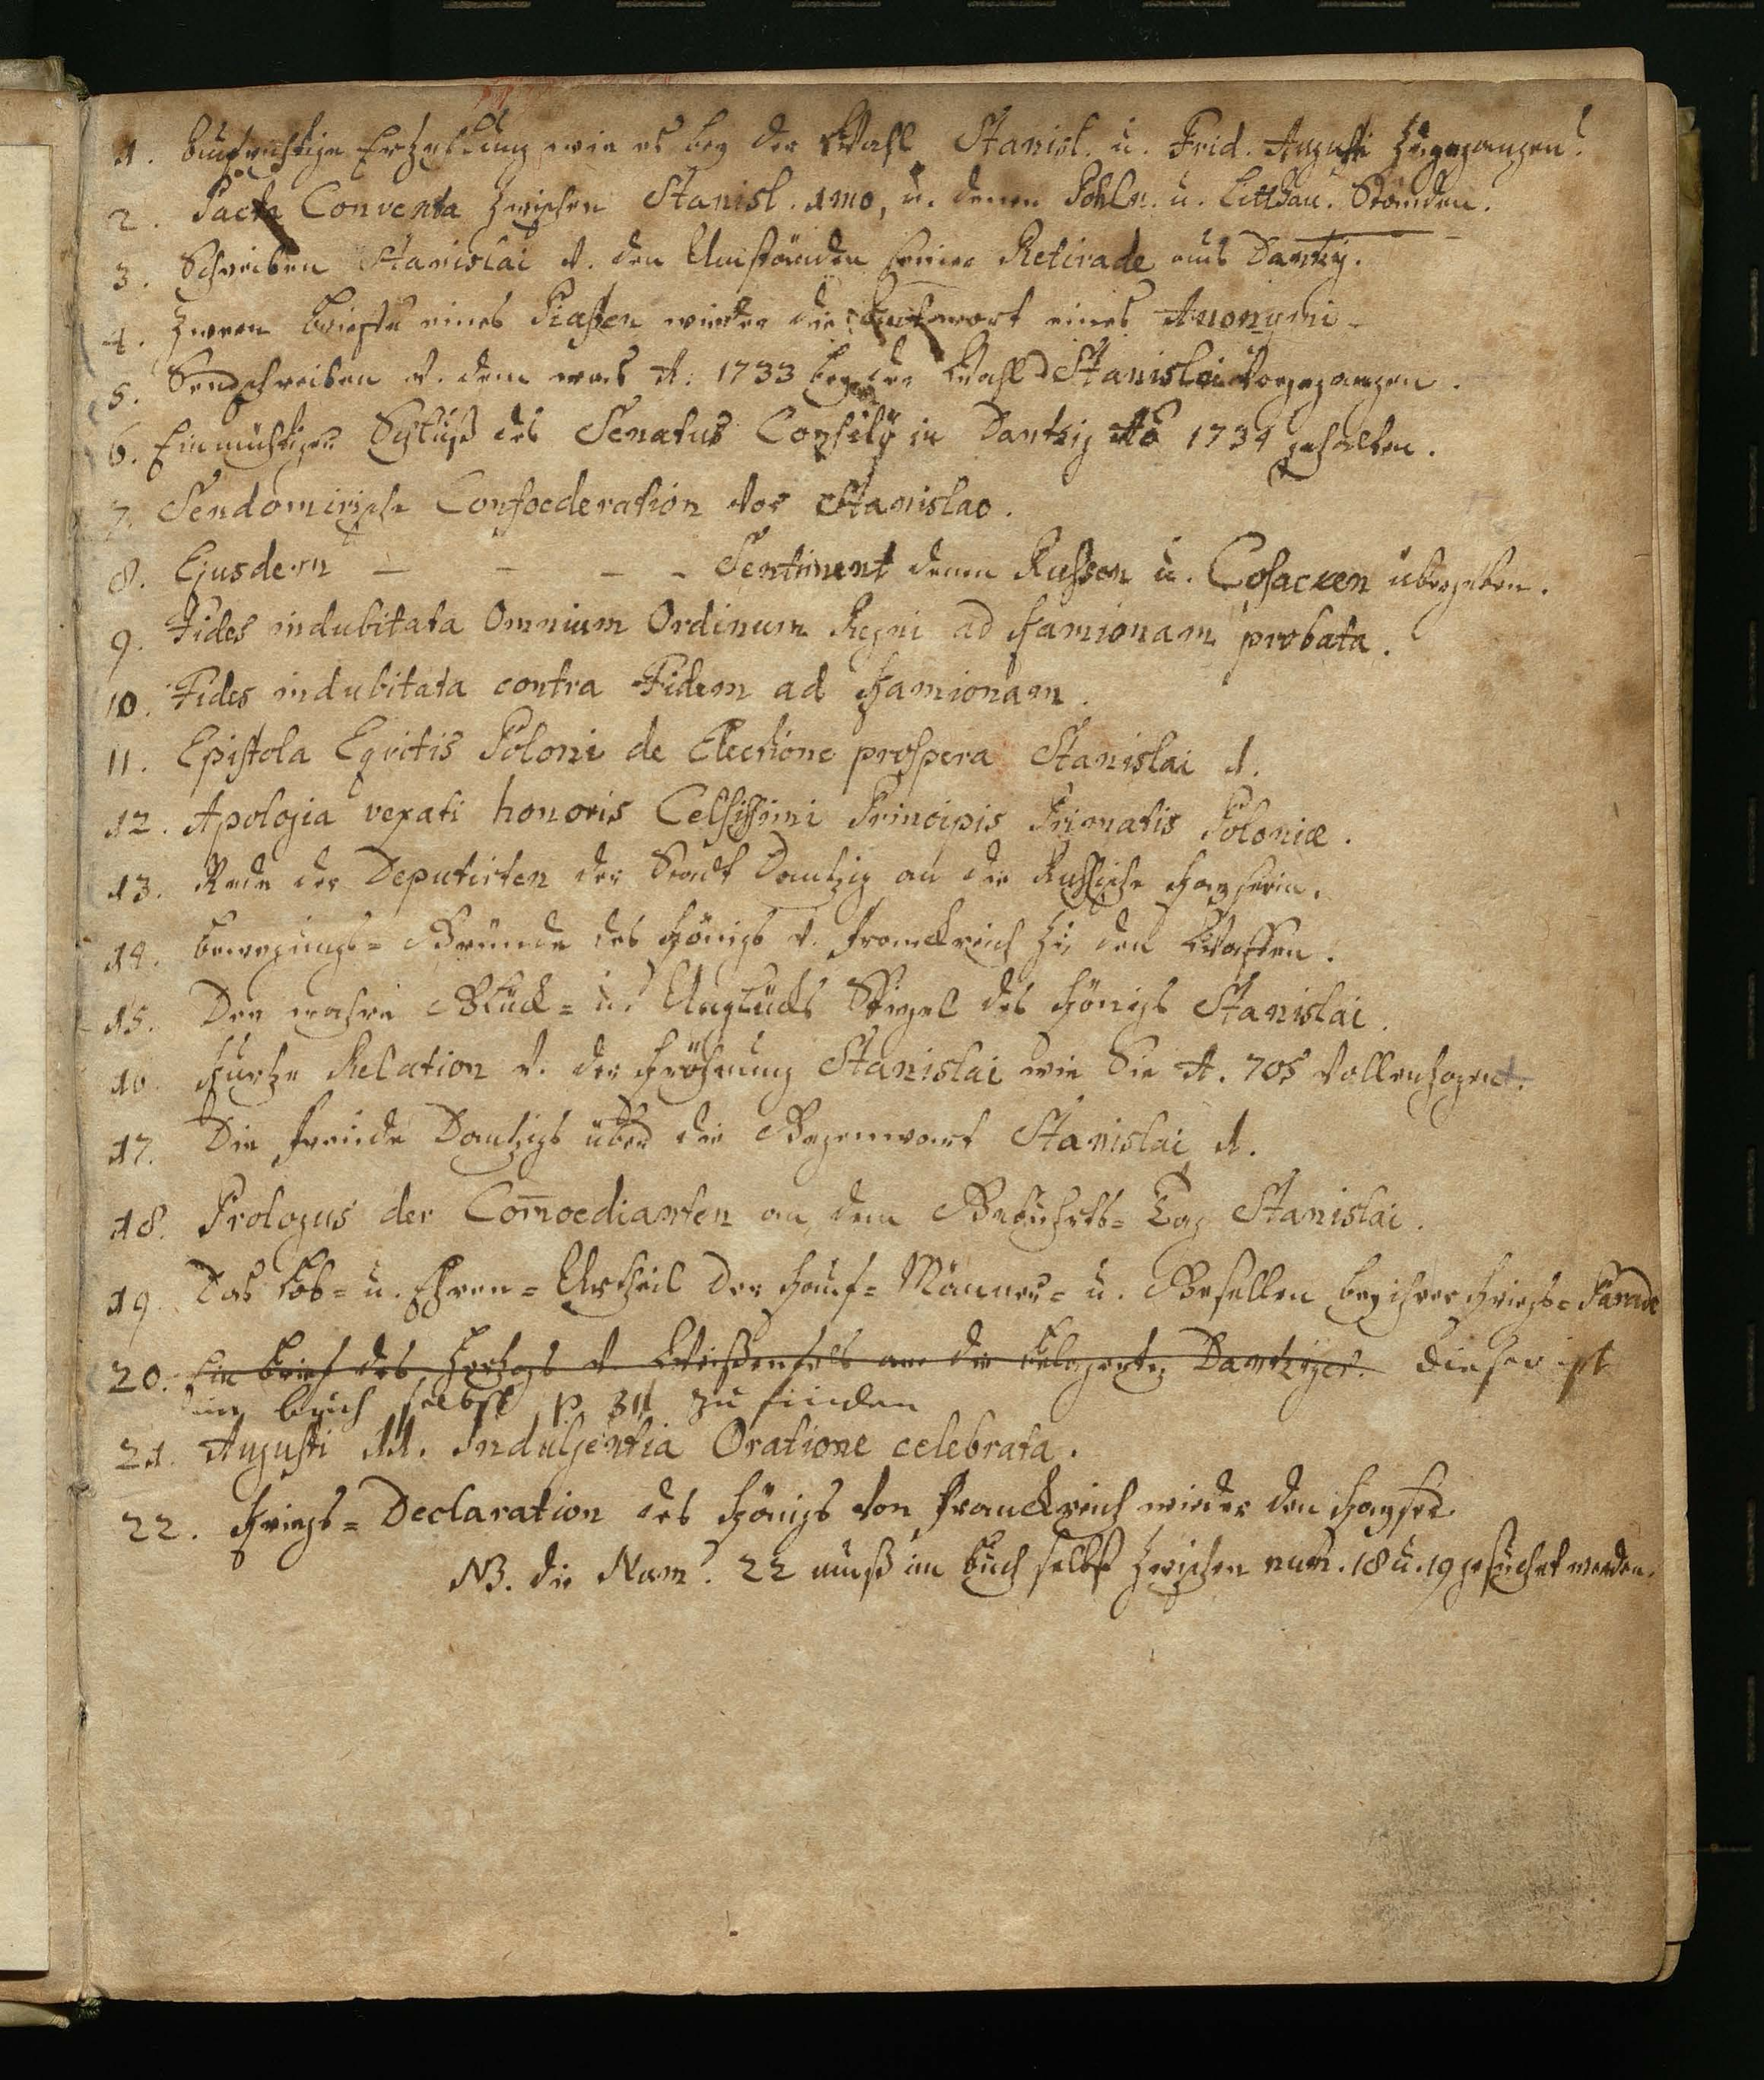 1. Aufrichtige Erzehlung wie es bey der Wahl Stanisl. u. Frid. Augusti zugegangen.
2. Pacta Conventa zwischen Stanisl. 1mo, u. denen Pohln. u. Litthau. Ständen.
3. Schreiben Stanislai v. den Umständen seiner Retirade aus Dantzig.
4. Zween Brieffe eines Piasten wieder die Antwort eines Anonymi
5. Sendschreiben v. dem was A. 1733 bey der Wahl Stanislai vorgegangen.
6. Einmüthiger Schluß des Senatus Consilij in Dantzig Aõ 1734 gehalten.
7. Sendomirische Confoederation vor Stanislao.
8. Ejusdem - - - - Sentiment denen Russen u. Cosacken übergeben.
9. Fides indubitata Omnium Ordinum Regni ad Kamionam probata.
10. Fides indubitata contra Fidem ad Kamionam.
11. Epistola Equitis Poloni de Electione prospera Stanislai 1.
12. Apologia vexati honoris Celsissimi Principis Primatis Poloniæ.
13. Rede der Deputirten der Stadt Dantzig an die Russische Kayserin.
14. Bewegungs= Gründe des Königs v. Franckreich zu den Waffen.
15. Der wahre Glück= u. Unglücks Spiegel des Königs Stanislai.
16. Kurtze Relation v. der Kröhnung Stanislai wie Sie A. 705 vollenzogen.
17. Die Freude Dantzigs über die Gegenwart Stanislai 1.
18. Prologus der Com̄oedianten an dem Gebuhrts= Tag Stanislai.
19. Das Lob= u. Ehren= Urtheil der Kauf= Männer= u. Gesellen bey ihrer Kriegs= Parade
20. Ein Brief des Hertzogs v. Weißenfels an die belagerten Dantziger. dieser ist
im buch selbst p. 311 zu finden
21. Augusti III. Indulgentia Oratione celebrata.
22. Kriegs= Declaration des Königs von Franckreich wieder den Kayser.
NB. die Num. 22 muß im buch selbst zwischen num. 18 u. 19 gesuchet werden.